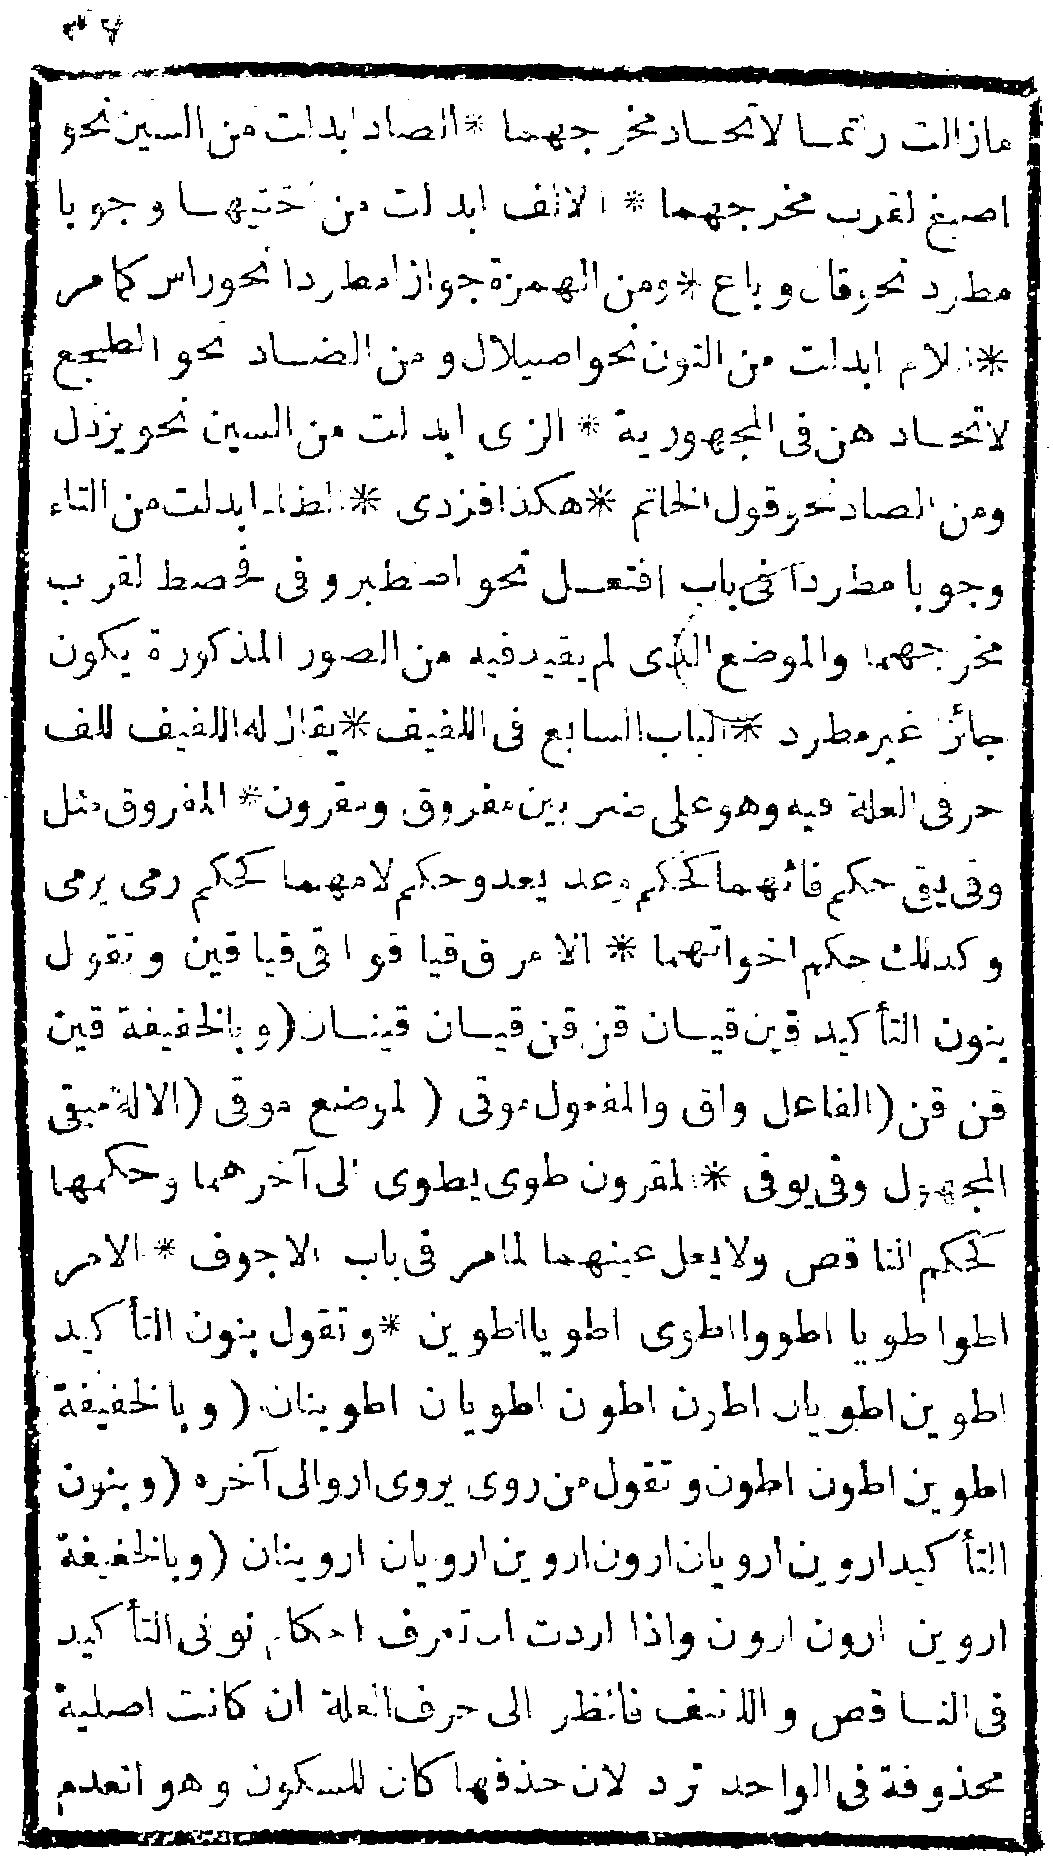 مازالت راتما لاتحاد مخرجهما * الصاد ابدلت من السين نحو
اصبغ لقرب مخرجهما * الالف ابدلت من اختيها وجوبا
مطرد نحو قال وباع * ومن الهمزة جوازا مطردا نحو راس كما مر
* اللام ابدلت من النون نحو اصيلال ومن الضاد نحو الطجع
لاتحاد هن فى المجهورية * الزى ابدلت من السين نحو يزدل
ومن الصاد نحو قول الحاتم * هكذا فزدى * الطاء ابدلت من التاء
وجوبا مطردا فى باب افتعل نحو اصطبر وفى فحصط لقرب
مخرجهما والموضع الذى لم يقيد فيه من الصور المذكورة يكون
جائزا غير مطرد * الباب السابع فى اللفيف * يقال له اللفيف للف
حرفى العلة فيه وهو على ضربين مفروق ومقرون * المفروق مثل
وقى يقى حكم فائهما كحكم وعد يعد وحكم لامهما كحكم رمى يرمى
وكذلك حكم اخواتهما * الامر ق قيا قوا قى قيا قين وتقول
بنون التأكيد قين قيان قن قن قيان قينان (وبالخفيفة قين
قن قن (الفاعل واق والمفعول موقى (الموضع موقى (الالة ميقى
المجهول وقى يوقى * المقرون طوى يطوى الى آخرهما وحكمها
كحكم الناقص ولايعل عينهما لما مر فى باب الاجوف * الامر
اطو اطويا اطووا اطوى اطويا اطوين * وتقول بنون التأكيد
اطوين اطويان اطون اطون اطويان اطوينان (وبالخفيفة
اطوين اطون اطون وتقول من روى يروى ارو الى آخره (وبنون
التأكيد اروين ارويان ارون اروين ارويان اروينان (وبالخفيفة
اروين ارون ارون واذا اردت ان تعرف احكام نونى التأكيد
فى الناقص واللفيف فانظر الى حرف العلة ان كانت اصلية
محذوفة فى الواحد ترد لان حذفها كان للسكون وهو انعدم